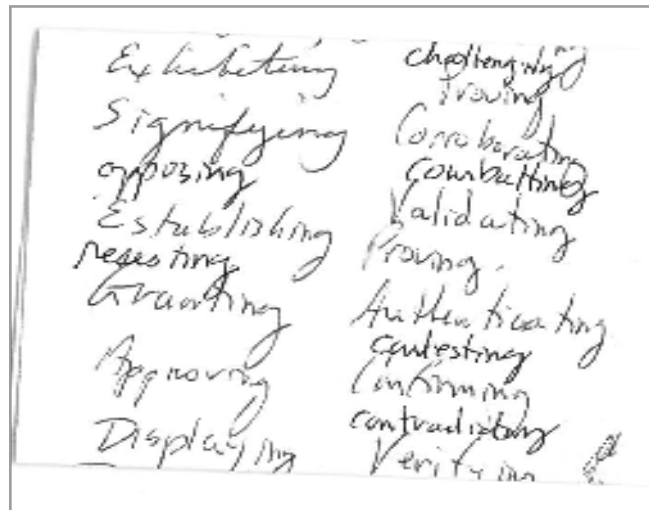 Exhibeting
Signifying
opposing
Establishing
Granting
Approving
Displaying
challenging
Proving
Corroborating
combatting
Validating
Proving.
Authenticating
contesting
Confirming
contradictory
Verifying